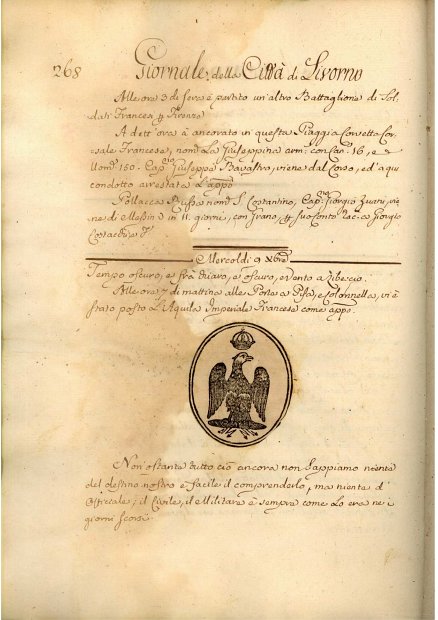 268 Giornale della Città di Livorno
Alle ore 3 di sera è partito un'altro Battaglione di Sol-
dati Francesi p Firenze
A dett'ora à ancorato in questa Piaggia Corvetta Cor-
sale Francese, nom. La Giuseppina arm. con Can. 16, e
Uom. 150. Cap. Giuseppe Bavastro, viene dal Corso, ed a qui
condotto arrestata L'app.
Pollacca Russa nom. S. Costantino, Cap. Giorgio viè
ne di Messina in 11 giorni, con Grano, p suo Conto, rac. a Giorgio
Mercoldì 9 Xbre
Tempo oscuro, e frà chiaro, e oscuro, e vento a Libeccio
Alle ore 7 di mattina alle Porte a Pisa, e Colonnella, vi è
stato posto L'Aquila Imperiale Francese come app.
Non ostante tutto ciò ancora non sappiamo niente
del destino nostro è facile il comprenderlo, ma niente d'
Officiale; il Civile, il Militare è sempre come Lo era nei
giorni scorsi